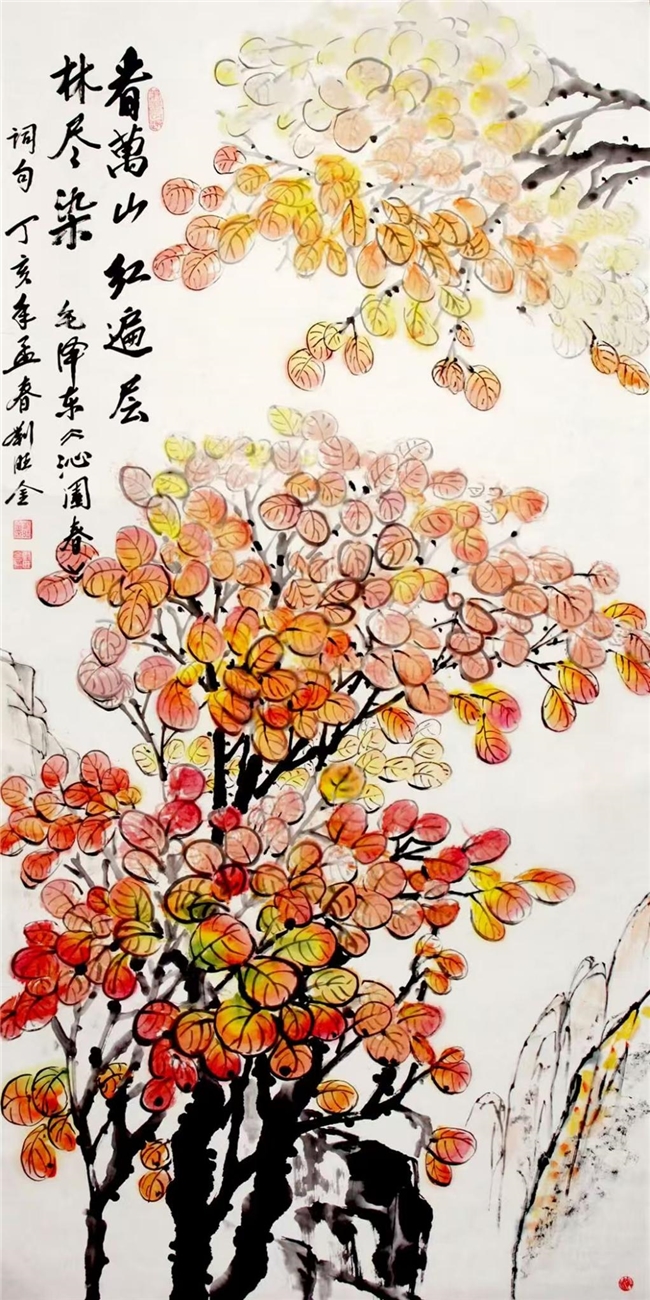 看萬山红遍层
林尽染 毛泽东《沁園春》
词句 丁亥年孟春刘旺金